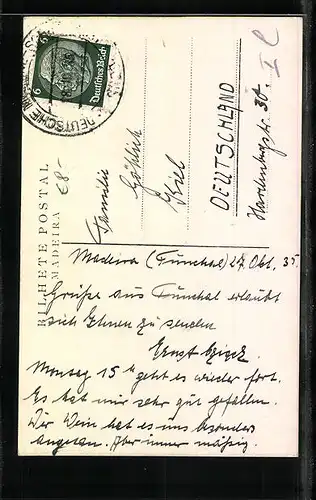 DEUTSCHE
6 6
Deutsches Reich
BILHETE POSTAL
MADEIRA
€8-
Familie
Göttlich
Kiel
DEUTSCHLAND
Hardenbergstr. 30. I l.
Madeira (Funchal) 27. Okt. 35.
Grüße aus Funchal erlaubt
sich Ihnen zu senden
Ernst
Montag 15 h geht es wieder fort.
Es hat mir sehr gut gefallen.
Der Wein hat es uns besonders
angetan. Aber immer mäßig.